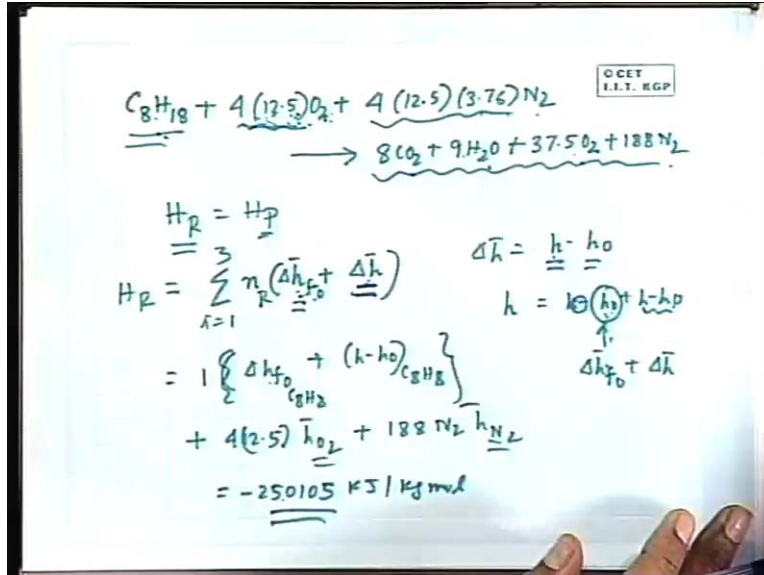 © CET
I.I.T. KGP
C8H18 + 4(12.5)O2 + 4(12.5)(3.76)N2
⟶ 8CO2 + 9H2O + 37.5O2 + 188N2
HR = HP
HR = 3 Σ i=1 nR(Δh̄f0 + Δh̄)
Δh̄ = h - h0
h = h0 + h-h0
Δh̄f0 + Δh̄
= 1 { Δhf0 C8H8 + (h-h0)C8H8 }
+ 4(2.5) h̄O2 + 188 N2 h̄N2
= -250105 KJ/Kg mol